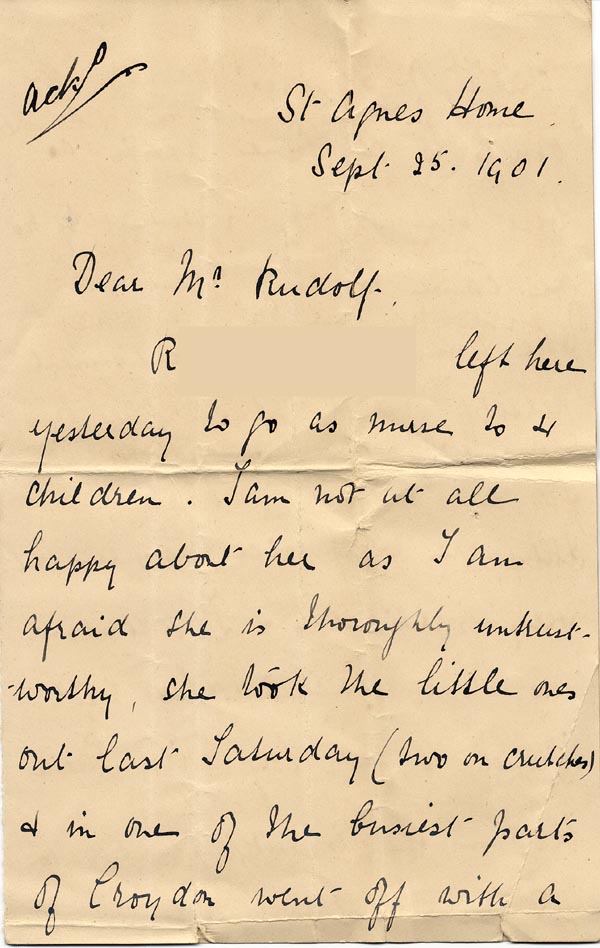 ackd
St Agnes Home
Sept 25. 1901.
Dear Mr Rudolf.
R left here
yesterday to go as nurse to 4
children. I am not at all
happy about her as I am
afraid she is thoroughly untrust-
-worthy, she took the little ones
out last Saturday (two on crutches)
& in one of the busiest parts
of Croydon went off with a